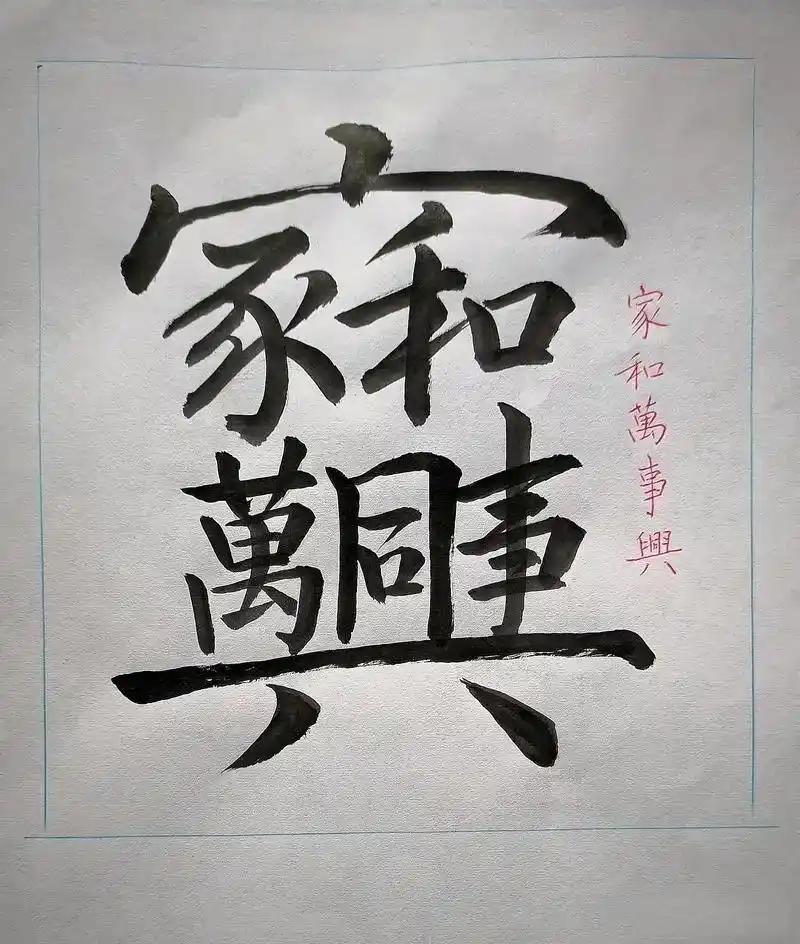 家和萬事興
家和萬事興